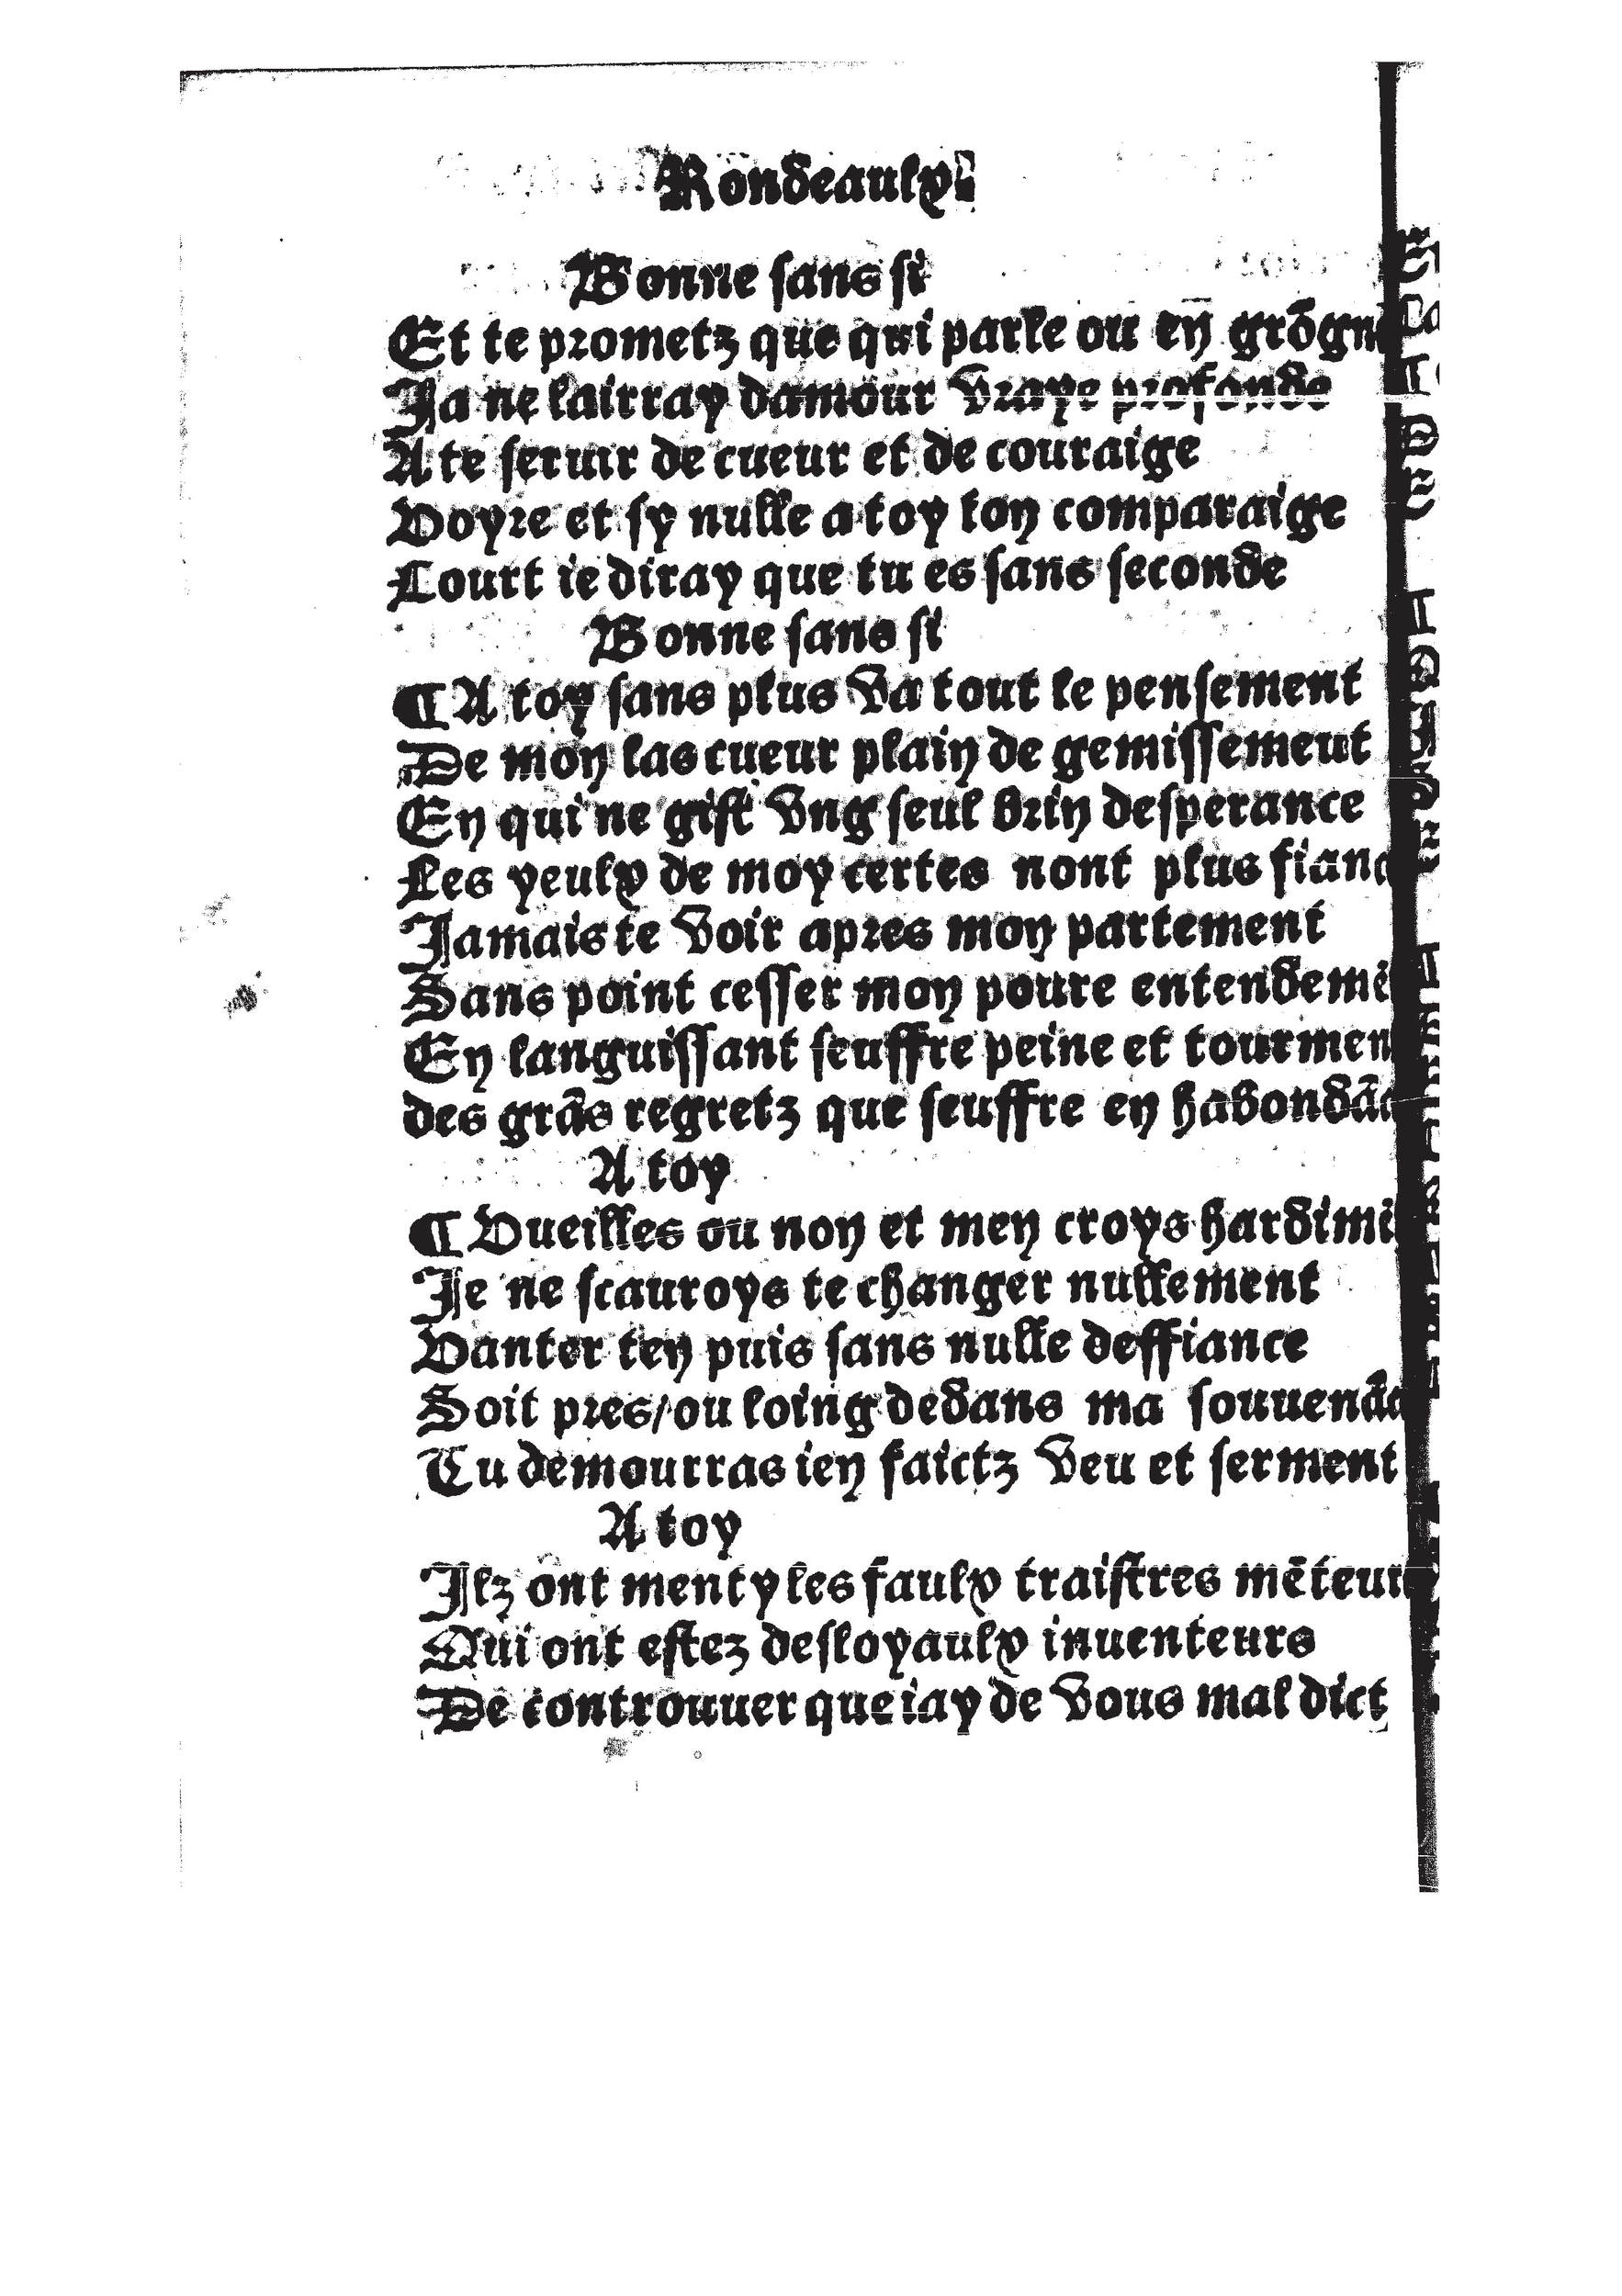 Rondeaulx
Bonne sans si
Et te prometz que qui parle ou en grõgne
Ja ne lairray damour vraye profonde
A te seruir de cueur et de couraige
Voyre et sy nulle a toy ton comparaige
Court ie diray que tu es sans seconde
Bonne sans si
¶ A toy sans plus va tout le pensement
De mon las cueur plain de gemissemeut
En qui ne gist vng seul brin desperance
Les yeulx de moy certes nont plus fianc
Jamais te voir apres mon partement
Sans point cesser mon poure entendemẽ
En languissant seuffre peine et tourmen
des grãs regretz que seuffre en habondãc
A toy
¶ Vueilles ou non et men croys hardimẽ
Je ne scauroys te changer nullement
Vanter ten puis sans nulle deffiance
Soit pres/ou loing dedans ma souuenãc
Tu demourras ien faictz veu et serment
A toy
Jlz ont menty les faulx traistres mẽteurs
Qui ont estez desloyaulx inuenteurs
De controuuer que iay de vous mal dict